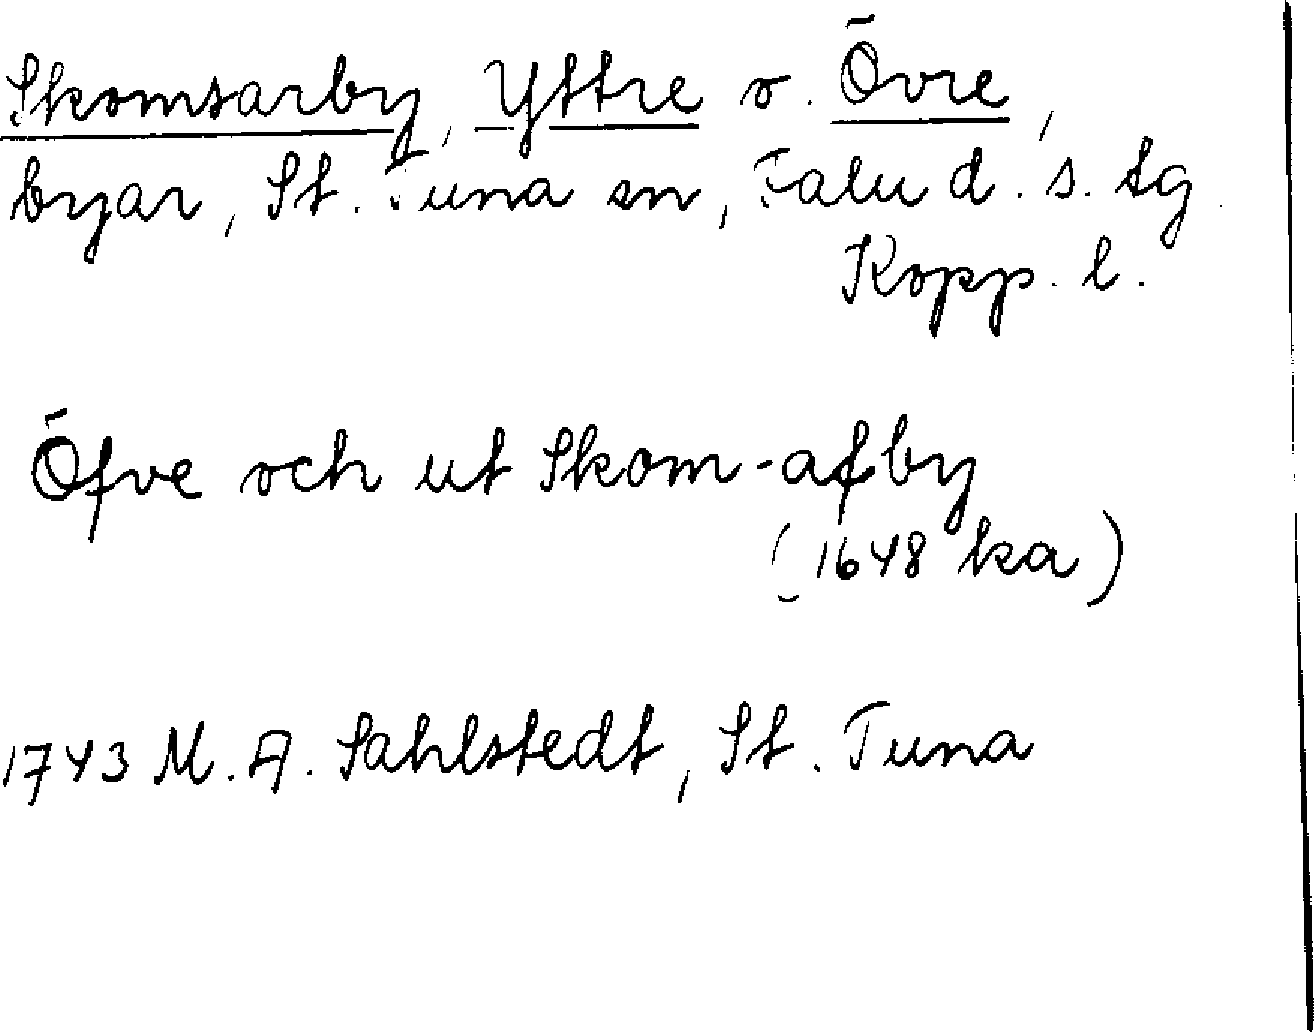 Skomsarby, Yttre o. Övre,
byar, St. Tuna sn, Falu d. s. tg
Kopp. l.
Öfve och ut Skom-afby
(1648 ka)
1743 M. A. Sahlstedt, St. Tuna